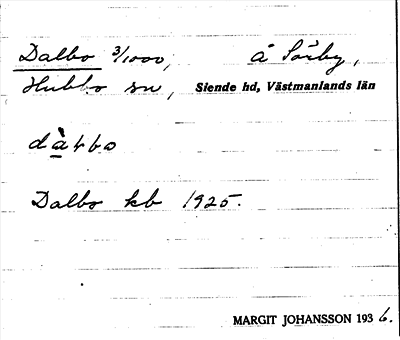 Dalbo 3/1000, å Sörby,
Hubbo sn, Siende hd, Västmanlands län
dàɫbo
Dalbo kb 1925.
MARGIT JOHANSSON 1936.